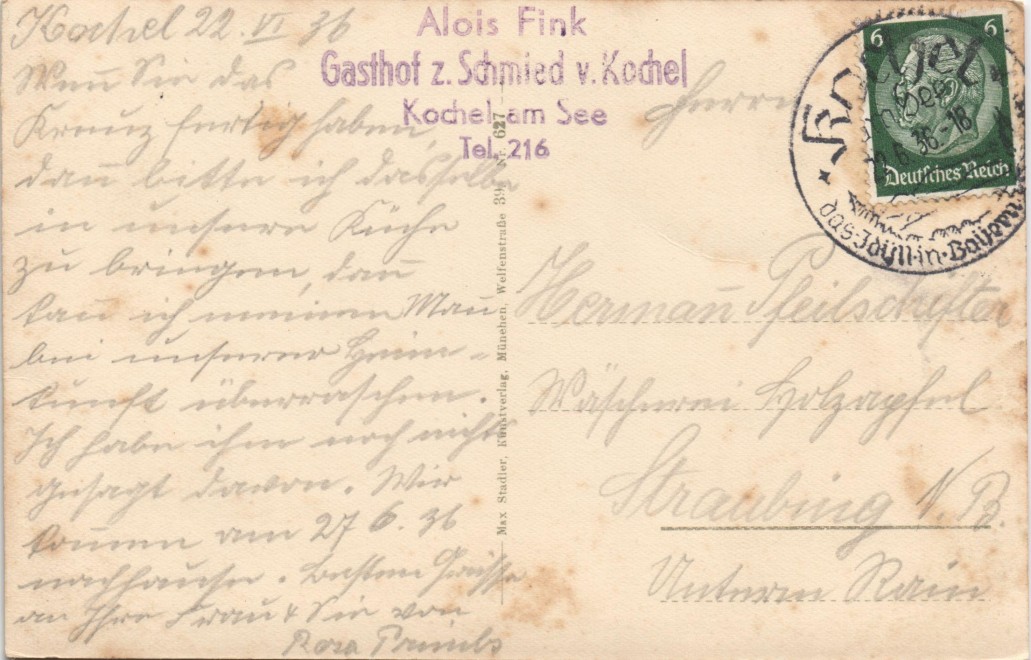 Kochel 22. VI 36
Wenn Sie das
Kreuz fertig haben,
dann bitte ich dasselbe
in unsere Küche
zu bringen, dann
kann ich meinen Mann
bei unserer Heim-
kunft überraschen.
Ich habe ihm noch nichts
gesagt davon. Wir
kommen am 27 6. 36
nachhause. Besten Grüsse
an Ihre Frau & Sie von
Rosa
Alois Fink
Gasthof z. Schmied v. Kochel
Kochel am See
Tel. 216
Max Stadler, Kunstverlag, München, Welfenstraße 39 Nr. 627
6 6
Deutsches Reich
KOCHEL
am See
6.36.-18
das Idyll in Bayern
Herrn
Hermann Pfeilschifter
Wäscherei Holzapfel
Straubing N. B.
Unterm Rain